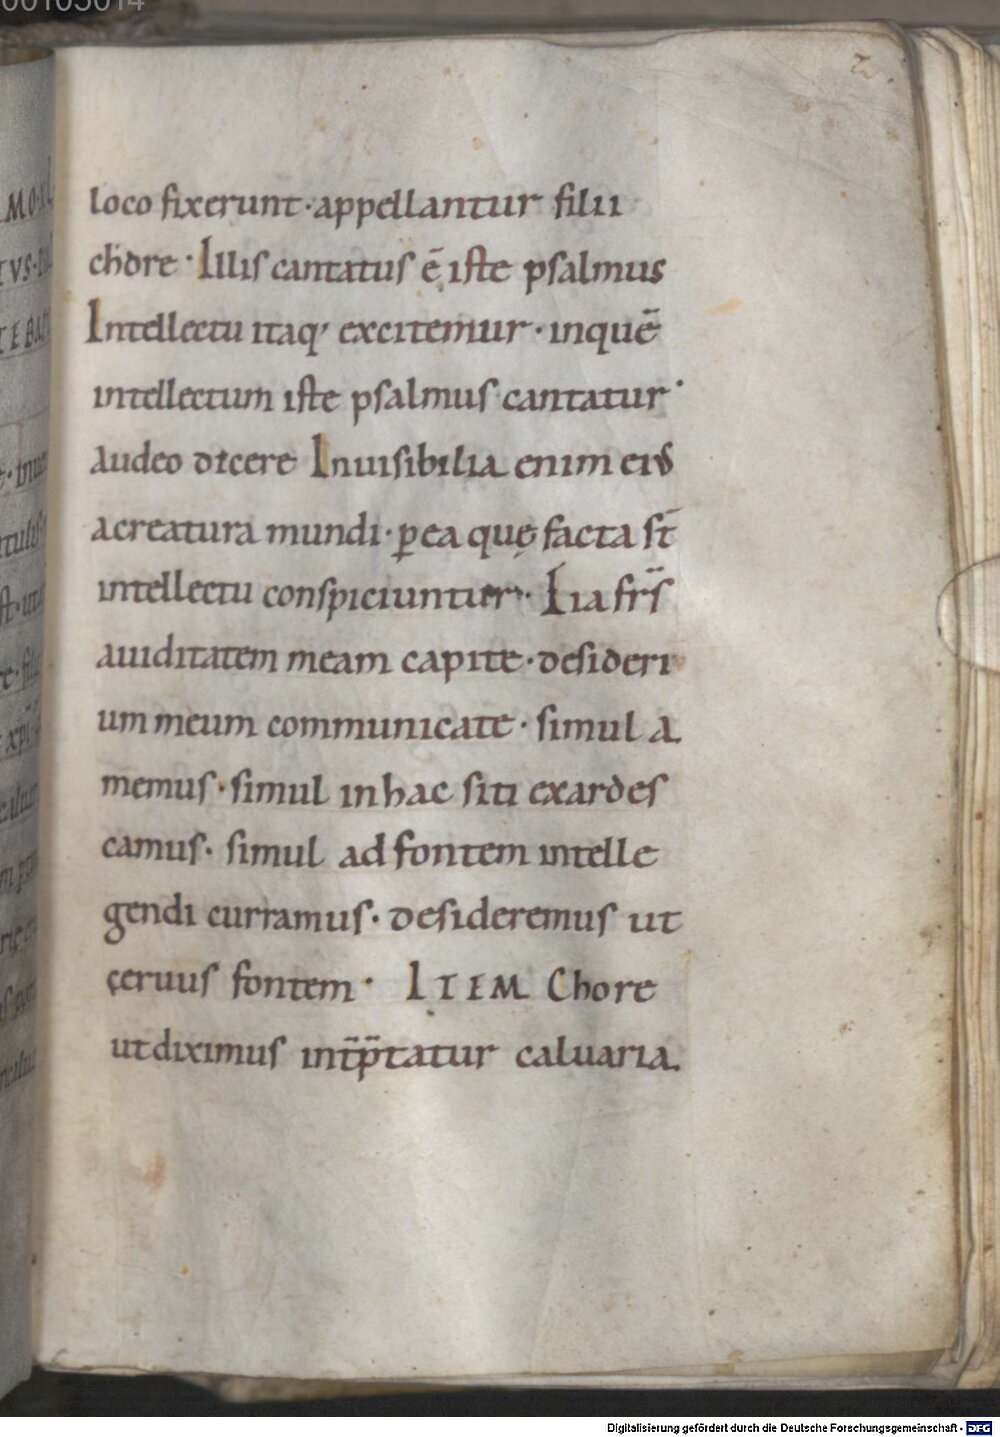 2.
loco fixerunt · appellantur filii
chore · Illis cantatus ē iste psalmus
Intellectu itaq' excitemur · inquē
intellectum iste psalmus cantatur ·
audeo dicere Inuisibilia enim eis
acreatura mundi · ꝑea quę facta st̄
intellectu conspiciuntur · Eia fr̄s
auiditatem meam capite · desideri
um meum communicate · simul a
memus · simul inhac siti exardes
camus · simul ad fontem intelle
gendi curramus · desideremus ut
ceruus fontem · ITEM Chore
utdiximus int̄p̄tatur caluaria.
Digitalisierung gefördert durch die Deutsche Forschungsgemeinschaft - DFG